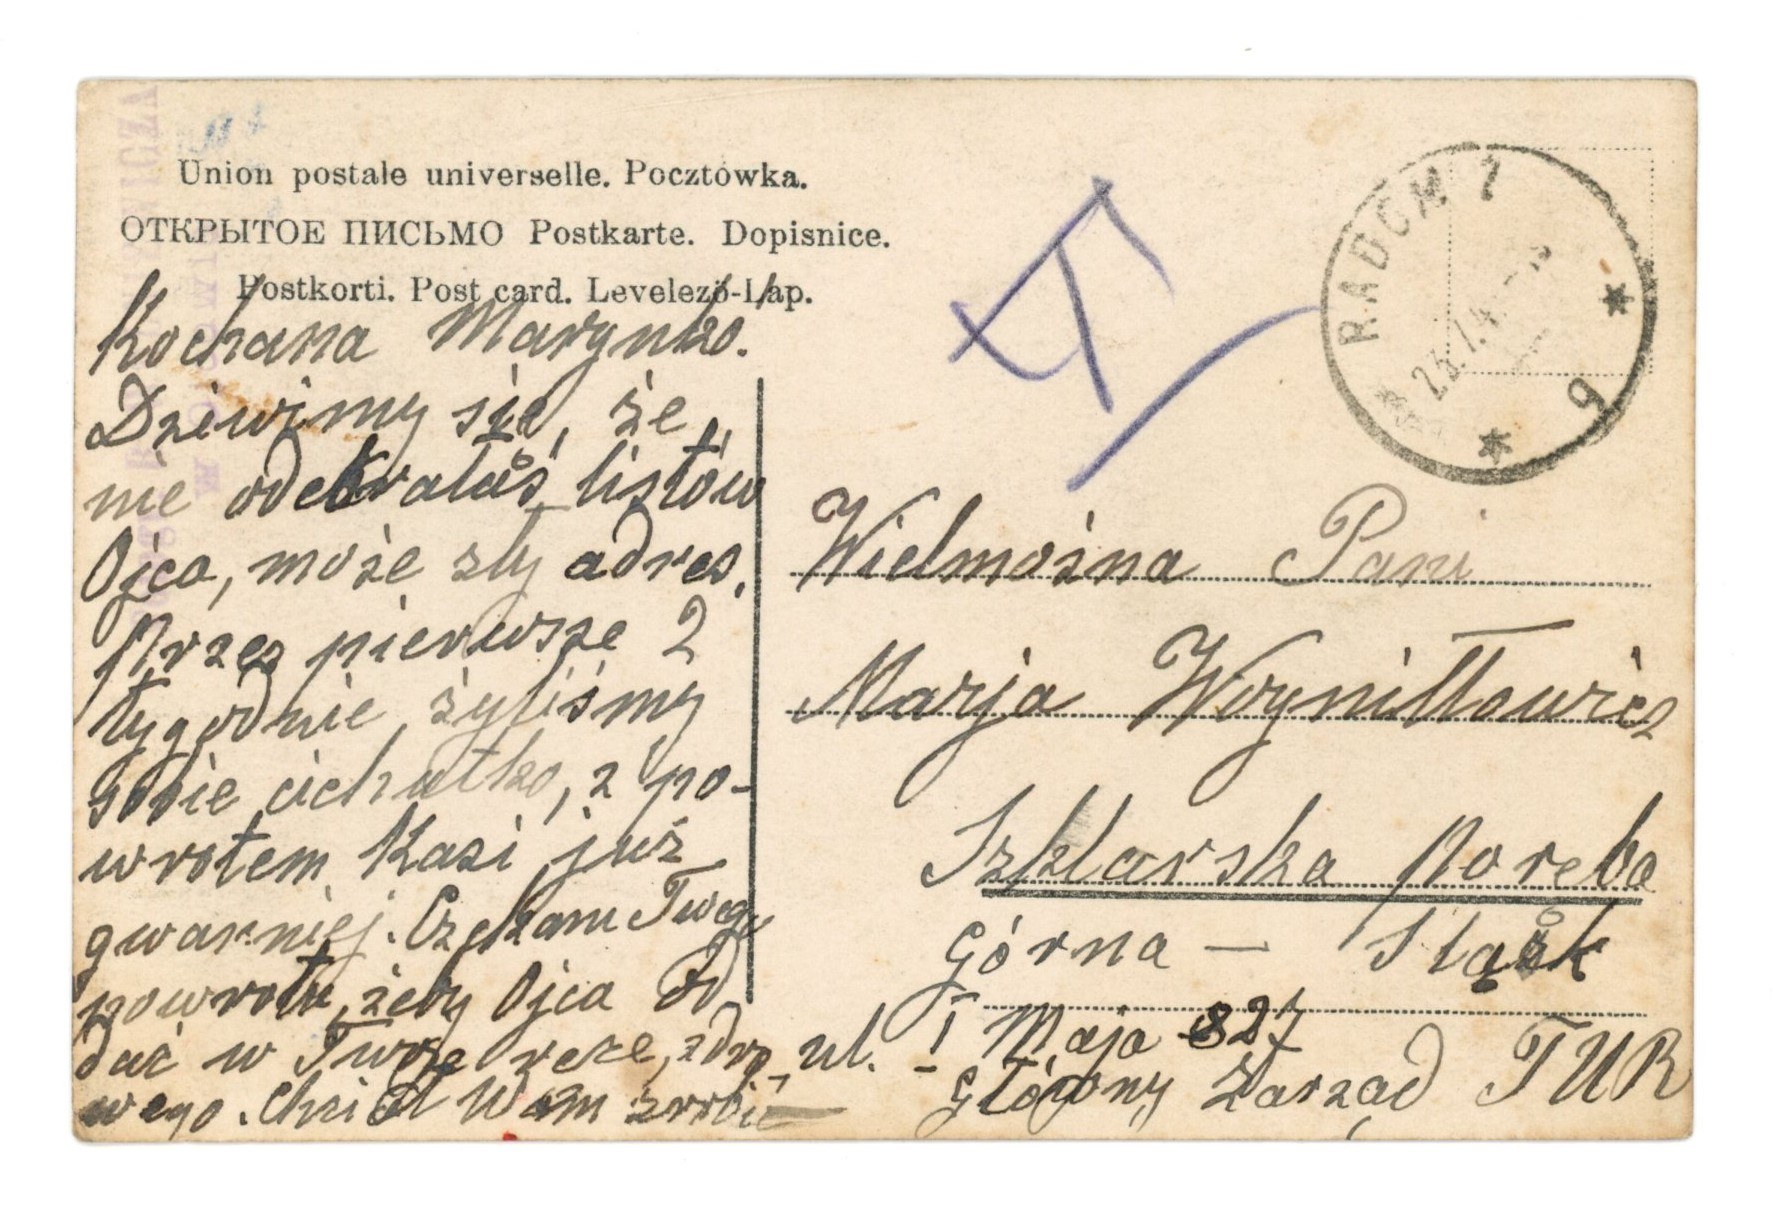 Union postale universelle. Pocztówka.
ОТКРЫТОЕ ПИСЬМО Postkarte. Dopisnice.
Postkorti. Post card. Levelező-Lap.
RADOM 1
23.7.4
g
T
Kochana Marynko.
Dziwimy się, że
nie odebrałaś listów
Ojca, może zły adres.
Przez pierwsze 2
tygodnie żyliśmy
sobie cichutko, z po-
wrotem Kazi już
gwarniej. Czekam Twego
powrotu, żeby Ojca od
dać w Twoje ręce, zdro
wego. Chciał Wam zrobić
Wielmożna Pani
Marja Woyniłłowicz
Szklarska Poręba
Górna — Śląsk
ul. 1 Maja 827
Główny Zarząd TUR